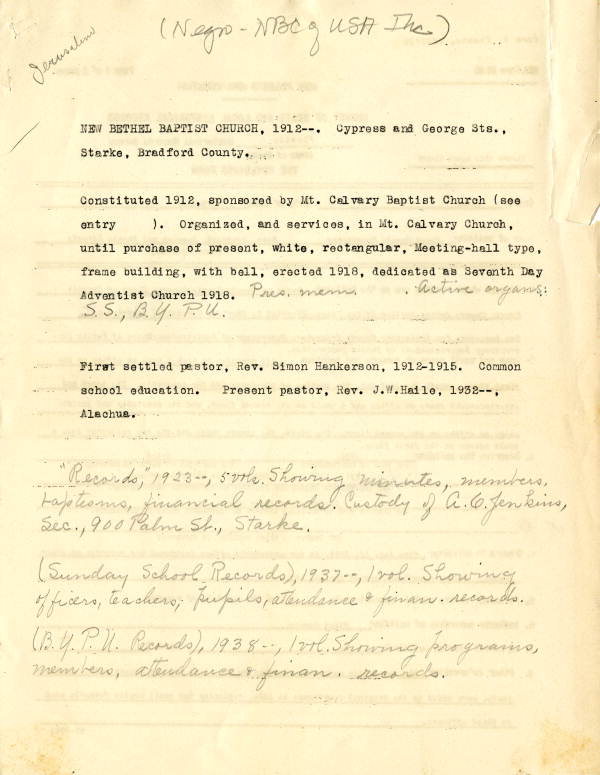 (Negro - NBC of USA Inc)
Jerusalem
NEW BETHEL BAPTIST CHURCH, 1912--. Cypress and George Sts.,
Starke, Bradford County.
Constituted 1912, sponsored by Mt. Calvary Baptist Church (see
entry ). Organized, and services, in Mt. Calvary Church,
until purchase of present, white, rectangular, Meeting-hall type,
frame building, with bell, erected 1918, dedicated as Seventh Day
Adventist Church 1918. Pres. mem. . Active organs:
S.S., B.Y.P.U.
First settled pastor, Rev. Simon Hankerson, 1912-1915. Common
school education. Present pastor, Rev. J.W.Haile, 1932--,
Alachua.
"Records," 1923--, 5 vols. Showing minutes, members,
baptisms, financial records. Custody of A.C. Jenkins,
Sec., 900 Palm St., Starke.
(Sunday School Records), 1937--, 1 vol. Showing
officers, teachers, pupils, attendance & finan. records.
(B.Y.P.U. Records), 1938--, 1 vol. Showing programs,
members, attendance & finan. records.